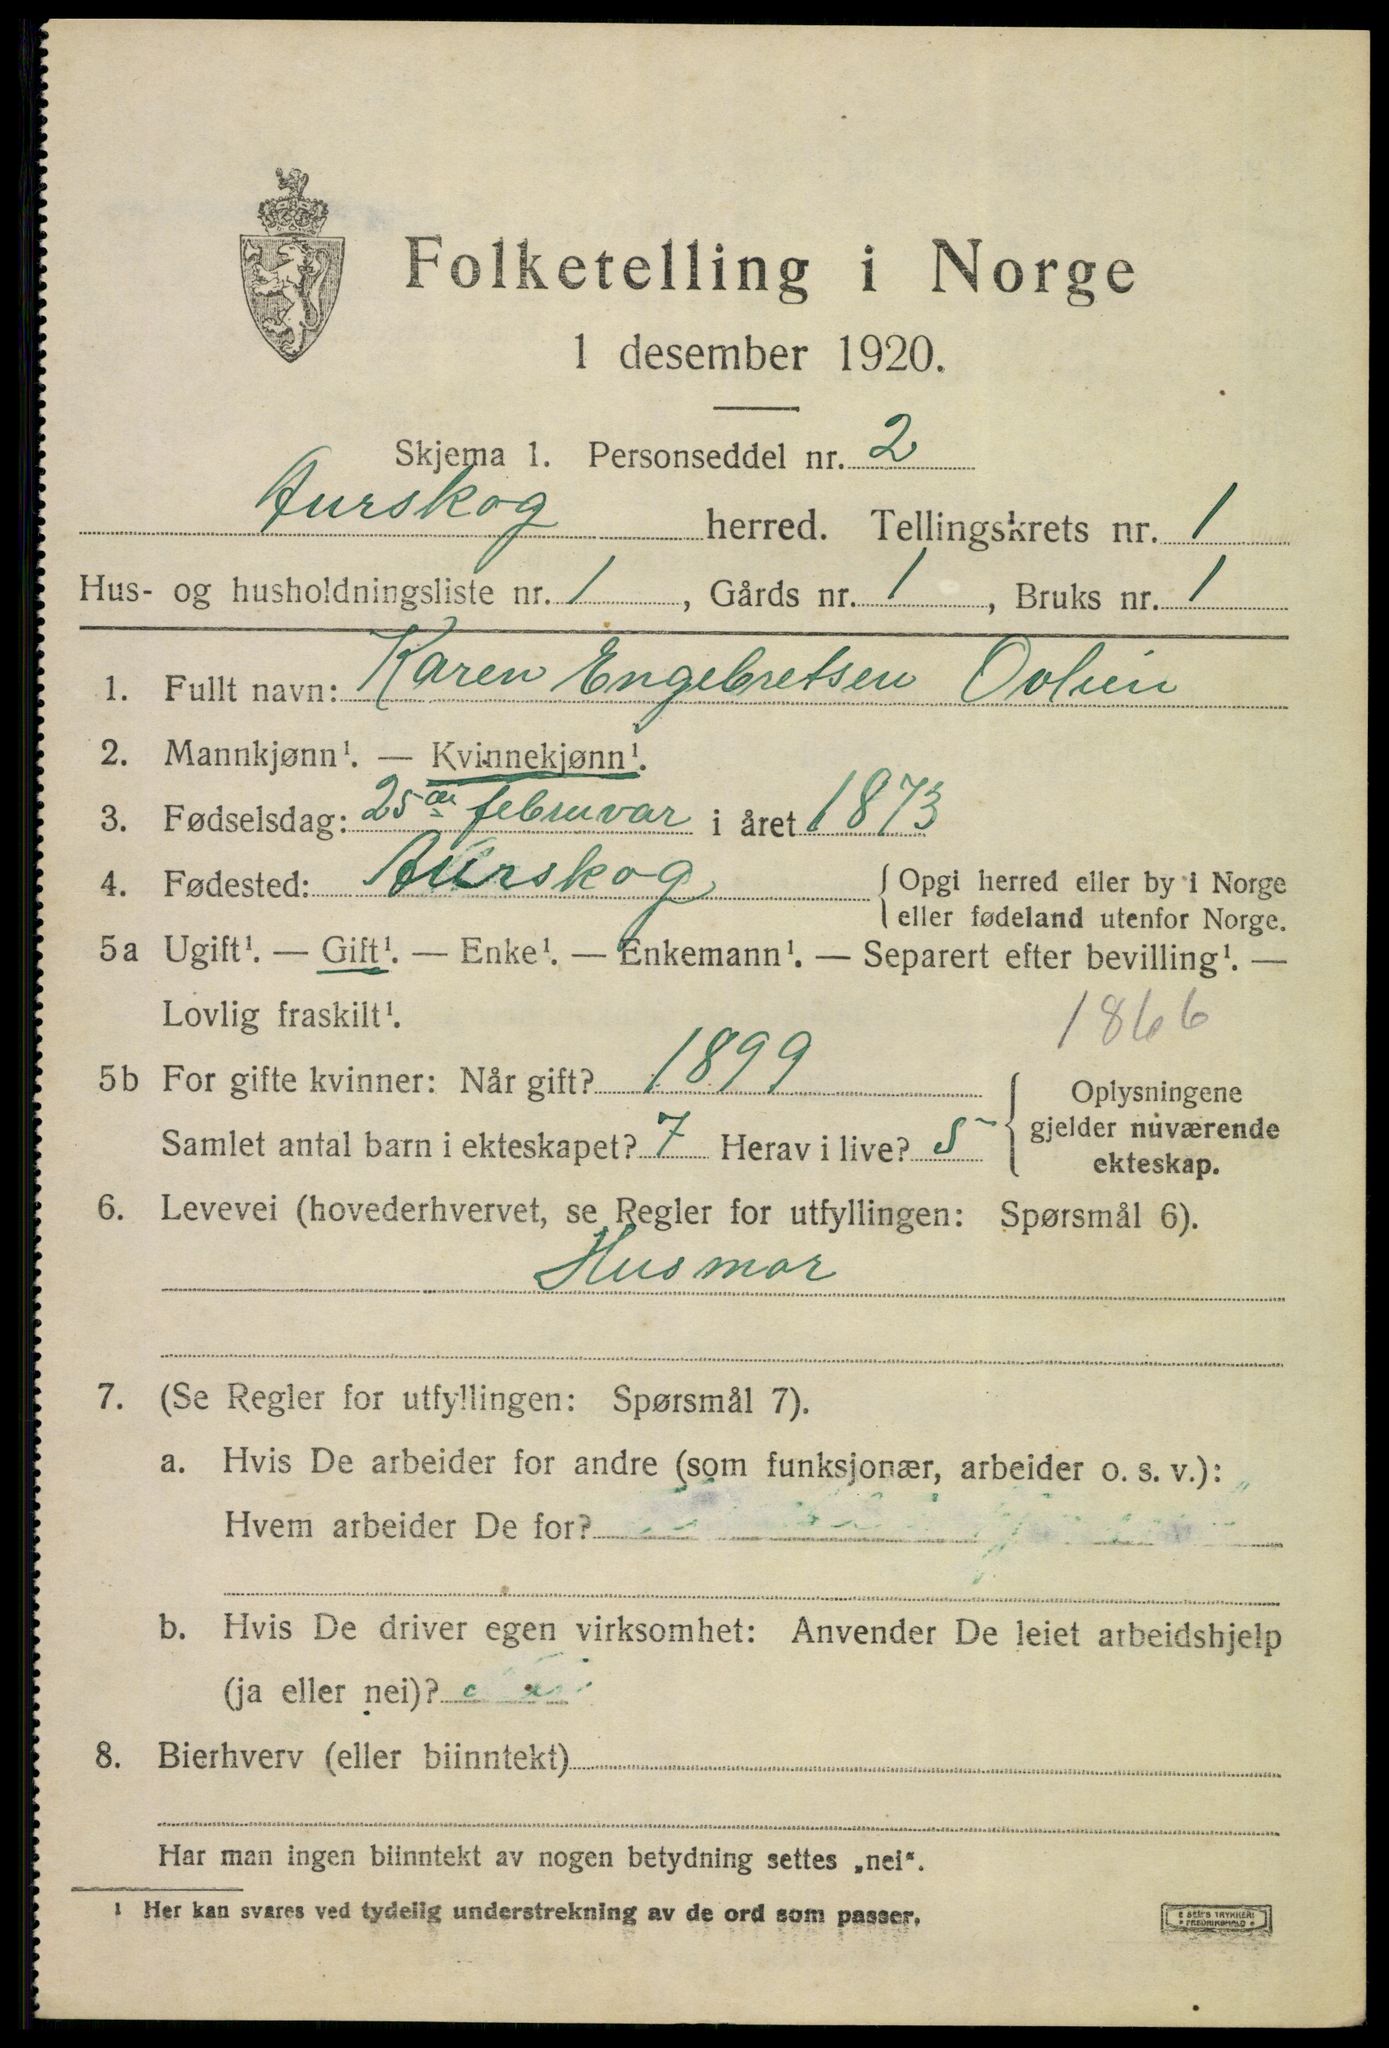 Folketelling i Norge
1 desember 1920.
Skjema 1. Personseddel nr. 2
Aurskog herred. Tellingskrets nr. 1
Hus- og husholdningsliste nr. 1, Gårds nr. 1, Bruks nr. 1
1. Fullt navn: Karen Engebretsen
2. Mannkjønn¹. — Kvinnekjønn¹.
3. Fødselsdag: 25 februar i året 1873
4. Fødested: Aurskog {Opgi herred eller by i Norge
eller fødeland utenfor Norge.
5a Ugift¹. — Gift¹. — Enke¹. — Enkemann¹. — Separert efter bevilling¹. —
Lovlig fraskilt¹.
1866
5b For gifte kvinner: Når gift? 1899
Samlet antal barn i ekteskapet? 7 Herav i live? 5
{Oplysningene
gjelder nuværende
ekteskap.
6. Levevei (hovederhvervet, se Regler for utfyllingen: Spørsmål 6).
Husmor
7. (Se Regler for utfyllingen: Spørsmål 7).
a. Hvis De arbeider for andre (som funksjonær, arbeider o. s. v.):
Hvem arbeider De for?
b. Hvis De driver egen virksomhet: Anvender De leiet arbeidshjelp
(ja eller nei)?
8. Bierhverv (eller biinntekt)
Har man ingen biinntekt av nogen betydning settes „nei“.
¹ Her kan svares ved tydelig understrekning av de ord som passer.